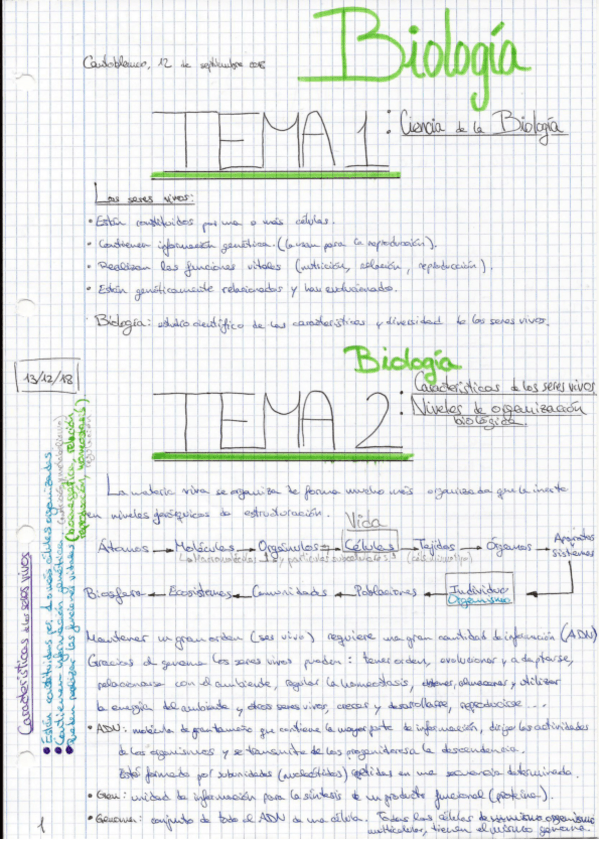 Biología
Cantoblanco, 12 de septiembre
TEMA 1: Ciencia de la Biología
Los seres vivos:
• Están constituidos por una o más células.
• Contienen información genética. (la usan para la reproducción).
• Realizan las funciones vitales (nutrición, relación, reproducción).
• Están genéticamente relacionados y han evolucionado.
• Biología: estudio científico de las características y diversidad de los seres vivos.
13/12/18
Biología
TEMA 2: Características de los seres vivos
Niveles de organización
biológica
La materia viva se organiza de forma mucho más organizada que la inerte
en niveles jerárquicos de estructuración.
Vida
Átomos → Moléculas → Orgánulos → Células → Tejidos → Órganos → Aparatos
sistemas
Biosfera ← Ecosistemas ← Comunidades ← Poblaciones ← Individuo
Organismo
Mantener un gran orden (ser vivo) requiere una gran cantidad de información (ADN)
Gracias al genoma los seres vivos pueden: tener orden, evolucionar y adaptarse,
relacionarse con el ambiente, regular la homeostasis, obtener, almacenar y utilizar
la energía del ambiente y otros seres vivos, crecer y desarrollarse, reproducirse...
• ADN: molécula de gran tamaño que contiene la mayor parte de información, dirige las actividades
de los organismos y se transmite de los progenitores a la descendencia.
Está formado por subunidades (nucleótidos) repetidas en una secuencia determinada.
• Gen: unidad de información para la síntesis de un producto funcional (proteína).
• Genoma: conjunto de todo el ADN de una célula. Todas las células de un mismo organismo
multicelular, tienen el mismo genoma.
Características de los seres vivos
• Están constituidos por 1 o más células organizadas
• Contienen información genética
• Pueden realizar las funciones vitales (bioenergética, relación,
reproducción, homeostasis)
1